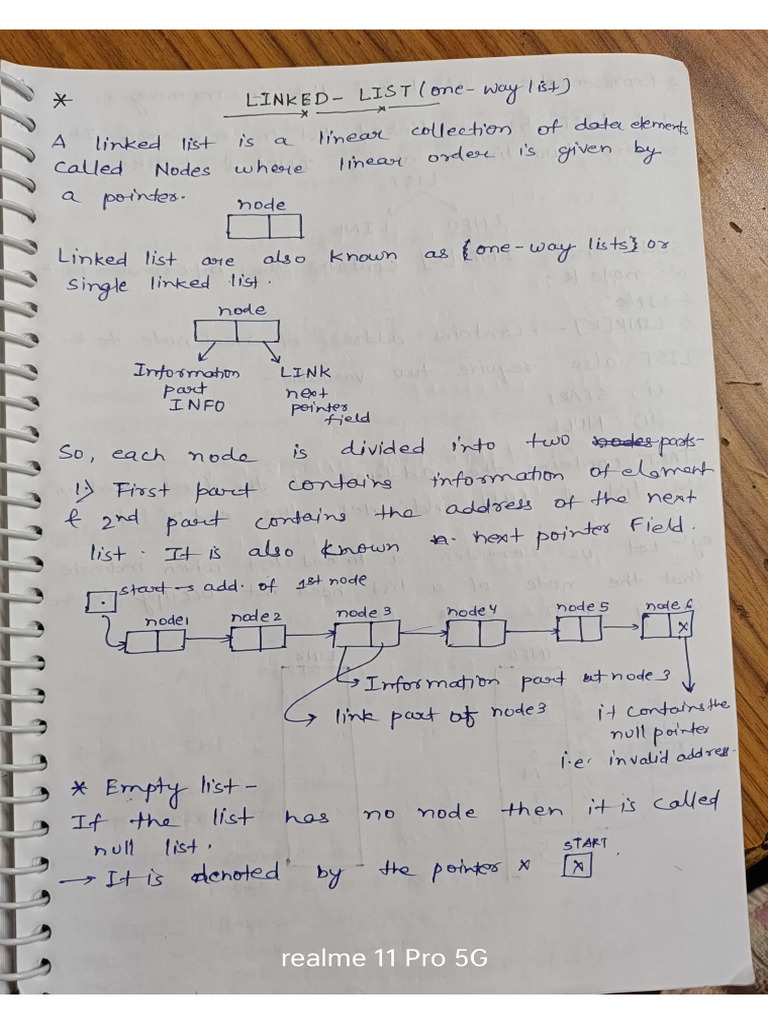 * LINKED- LIST (one-way list)
A linked list is a linear collection of data elements
called Nodes where linear order is given by
a pointer.
node
Linked list are also known as {one-way lists} or
single linked list.
node
Information LINK
part next
INFO pointer
field
So, each node is divided into two nodes parts-
1) First part contains information of element
& 2nd part contains the address of the next
list. It is also known n. next pointer Field.
start → add. of 1st node
node1 node2 node 3 node4 node5 node 6
x
Information part of node 3
link part of node3
it contains the
null pointer
i.e. invalid address.
* Empty list -
If the list has no node then it is called
null list.
START
→ It is denoted by the pointer x x .
realme 11 Pro 5G